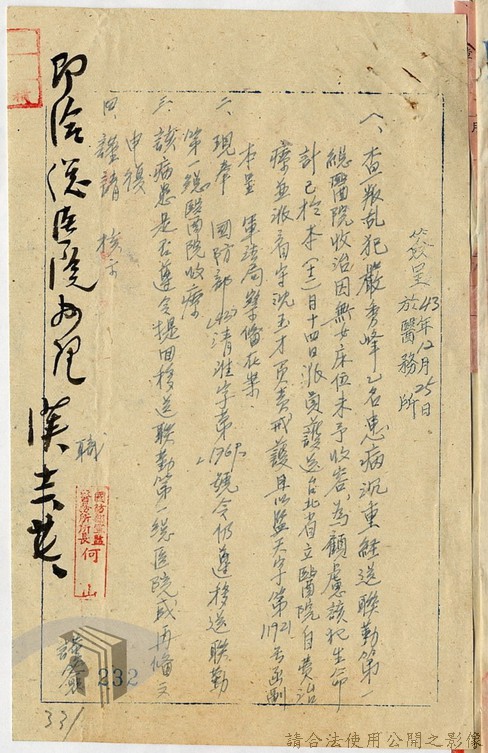 簽呈 43年12月25日
於醫務所
一、查叛乱犯嚴秀峰乙名患病沉重経送联勤第一
總醫院收治因無女床位未予收容為顧慮該犯生命
計已於本(十二)日十四日派員護送台北省立醫院自費治
療並派看守沈玉才負責戒護具以監天字第1921号函副
本呈 軍法局察俻在案
二、現奉 國防部(43)清淮字第1769號令仍遵移送联勤
第一總醫院收療
三、該病患是否遵令提回移送联勤第一總医院或再俻文
申復
四、謹請 核示
職
國防部軍監
醫務所所長
何山
謹簽
即洽總医院办理
232
331
請合法使用公開之影像